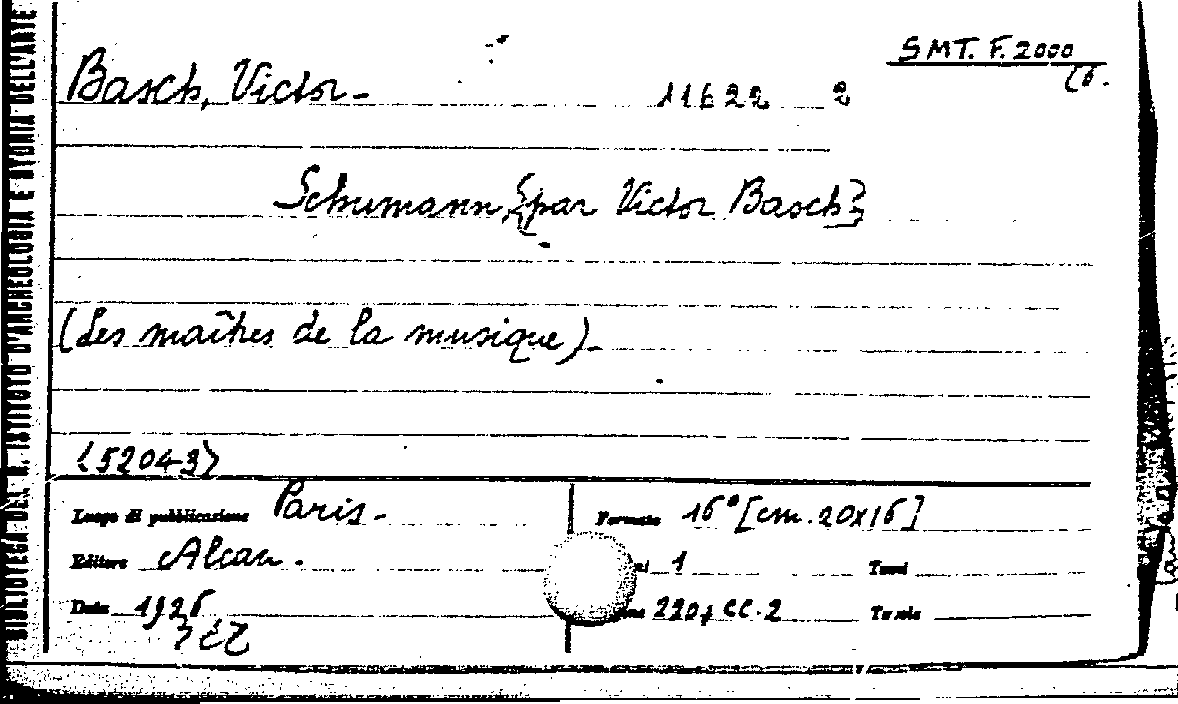 BIBLIOTECA DEL R. ISTITUTO D'ARCHEOLOGIA E STORIA DELL'ARTE
SMT. F. 2000
Basch, Victor - 11622 2
Schumann, [par Victor Basch]
(Les maîtres de la musique).
<52043>
Luogo di pubblicazione Paris.
Editore Alcan.
Data 1926
Formato 16° [cm. 20x16]
1
Tomi
220, CC. 2
Tavole